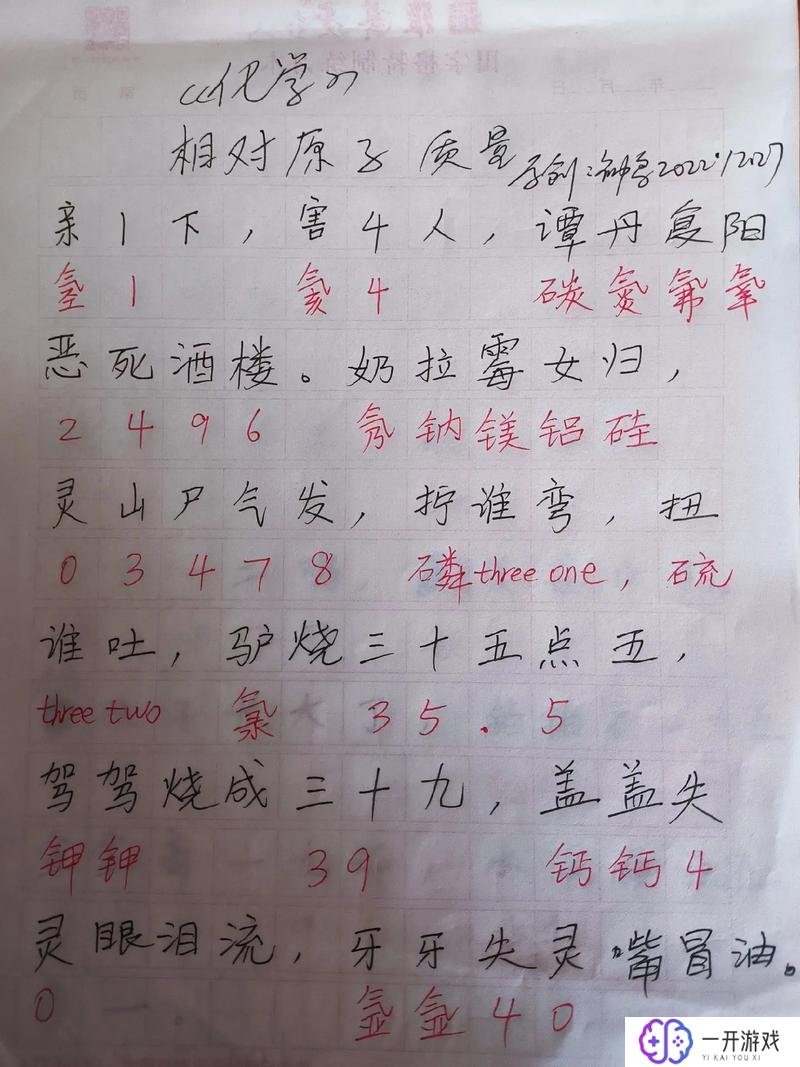 《化学》
相对原子质量 原创:神鸟2022.12.27
亲1下，害4人，谭丹复阳
氢1 氦4 碳氮氟氧
恶死酒楼。奶拉霉女归，
2496 氖钠镁铝硅
灵山尸气发，拧谁弯，扭
03478 磷three one，硫
谁吐，驴烧三十五点五，
three two 氯35.5
驾驾烧成三十九，盖盖失
钾钾 39 钙钙4
灵眼泪流，牙牙失灵嘴冒油。
0 氩氩40
一开游戏
YI KAI YOU XI